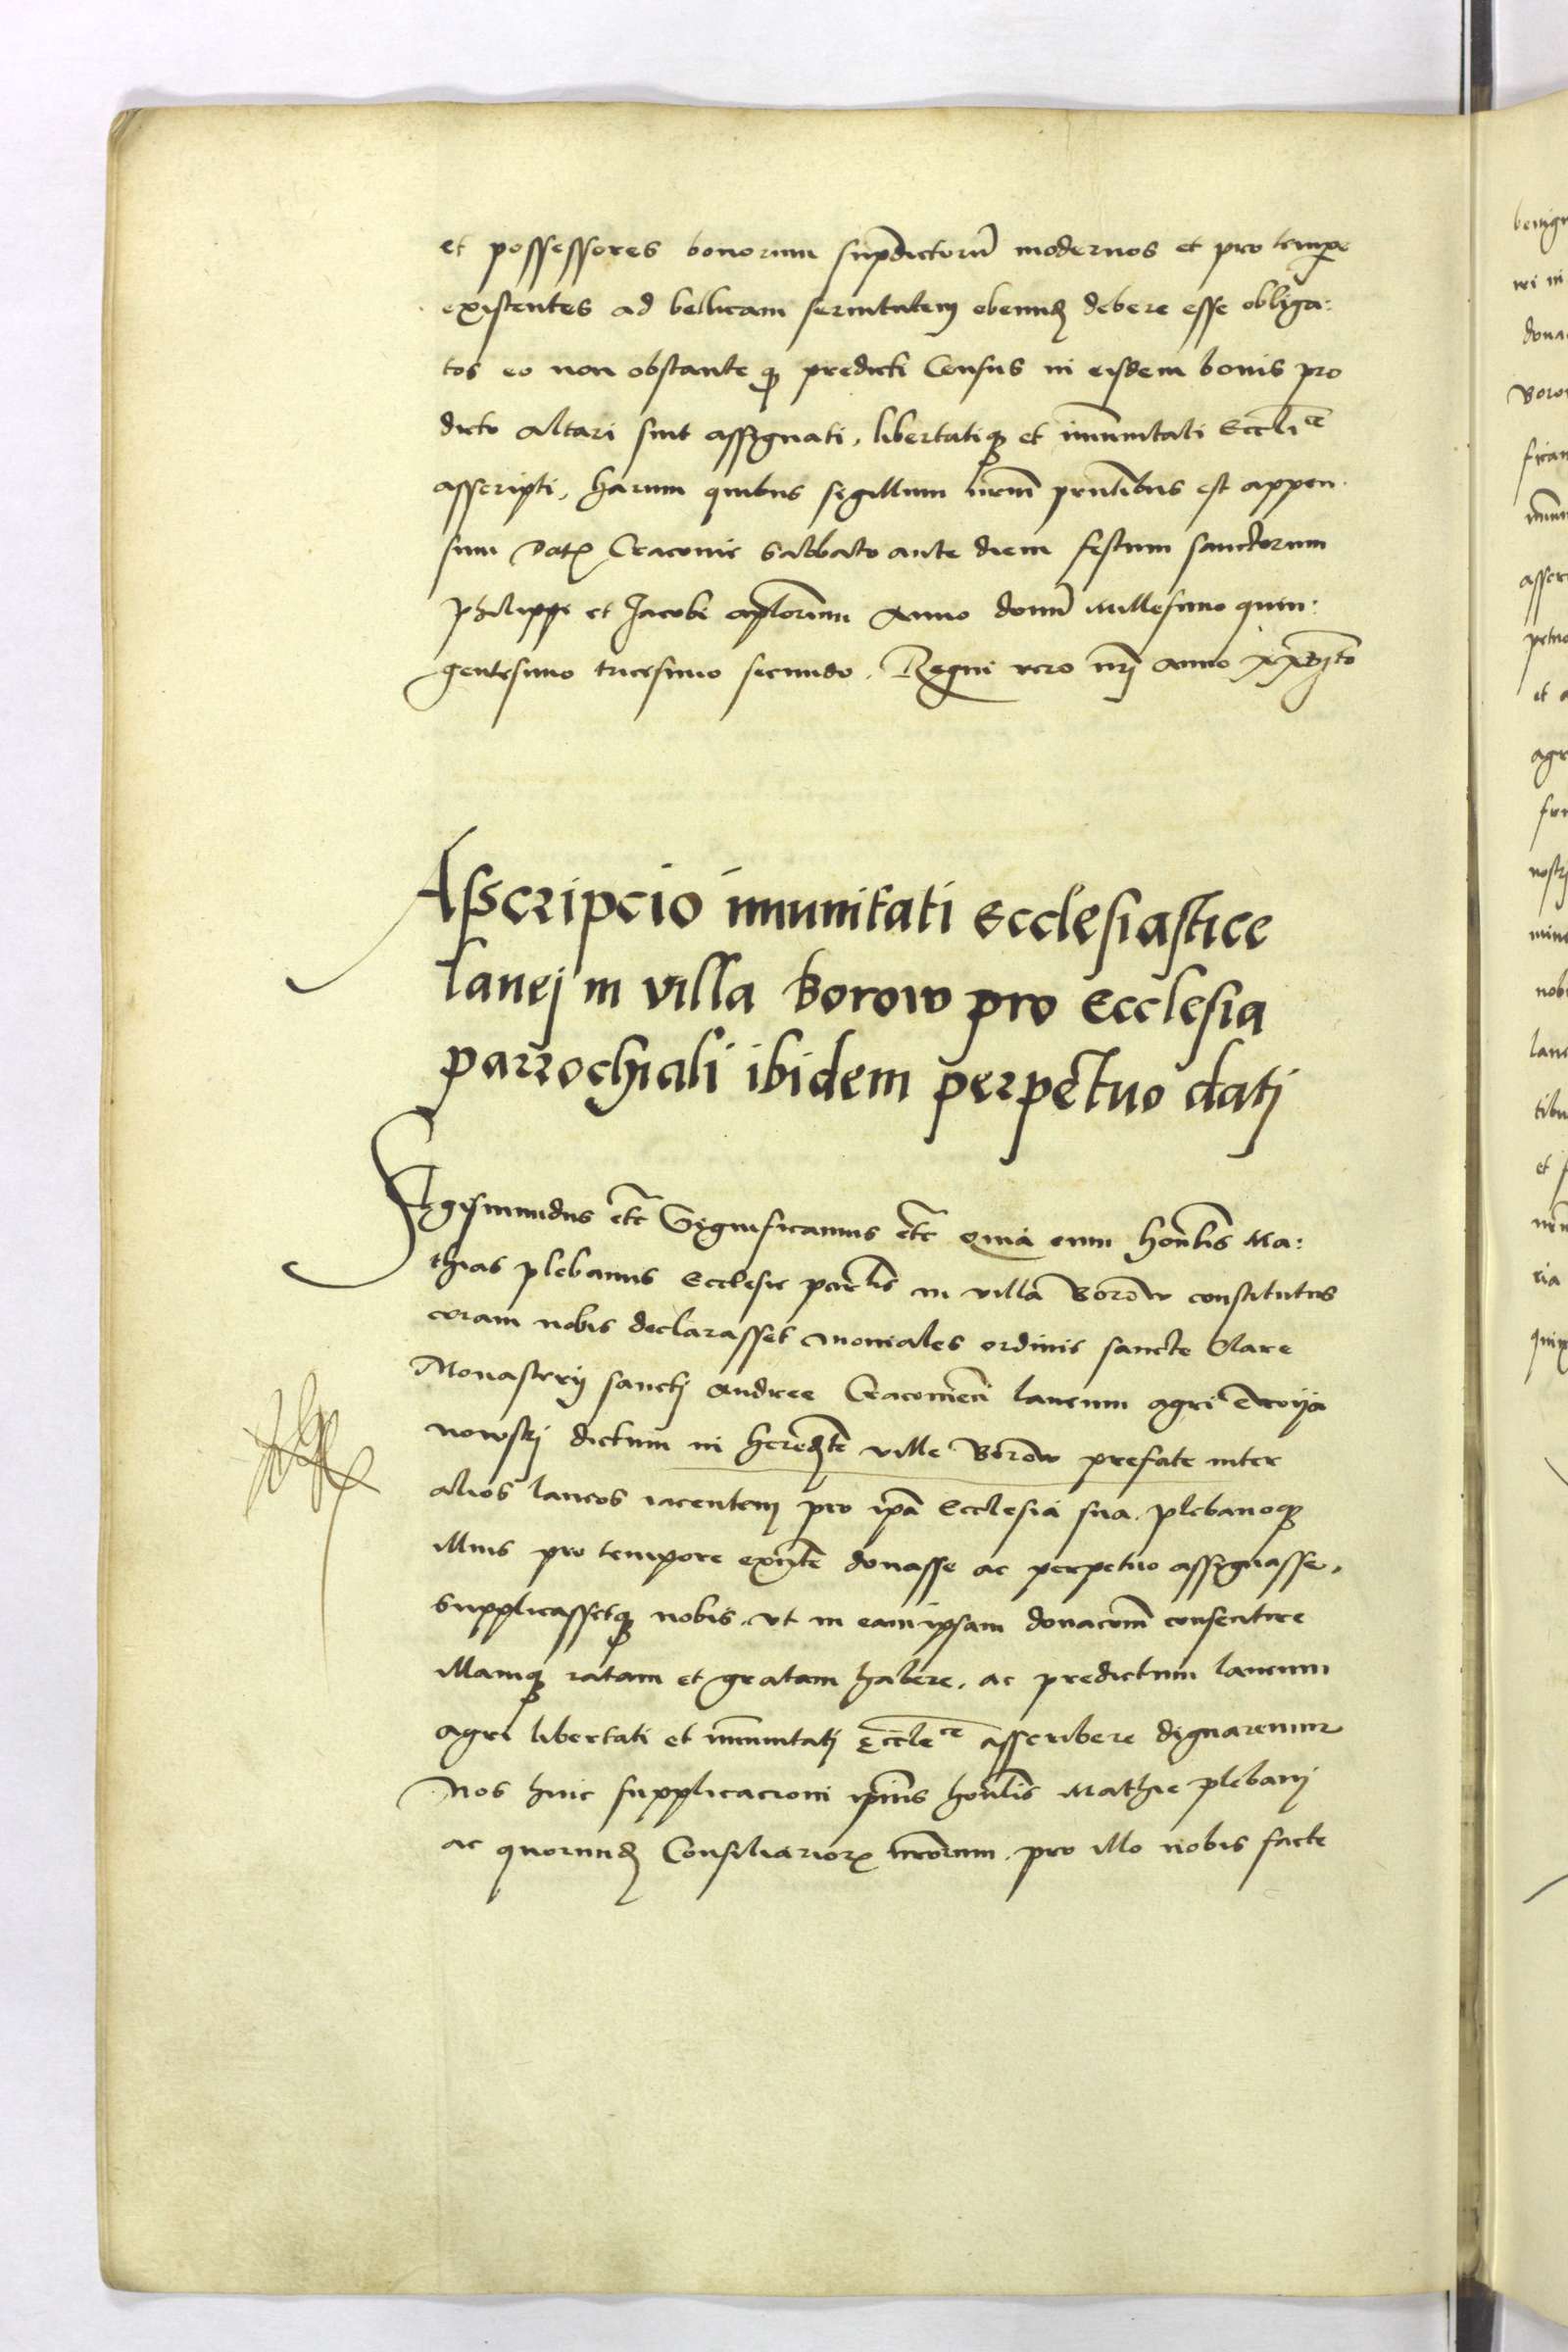 et possessores bonorum supradictoru modernos et pro tempe
existentes ad bellicam seruitutem obeund debere esse obliga:
tos eo non obstante q predicti Census in eisdem bonis pro
dicto altari sint assignati, libertatiq et imunitati Eccl̄ice
asscripti, harum quibus sigillum nrm̄ pn̄tibus est appen
sum Dat Cracouie Sabbato ante diem festum sanctorum
Philippi et Jacobi aplorum Anno domi Millesimo quin:
gentesimo tricesimo secundo. Regni vero nrj anno XXVJto
Asscripcio imunitati Ecclesiastice
lanej in villa Borow pro Ecclesia
parrochiali ibidem perpetuo datj
Sigismundus etc Significamus etc Quia cum honbilis Ma:
thias plebanus Ecclesie parlis in villa Borow constitutus
coram nobis declarasset moniales ordinis sancte Clare
Monasterij sanctj Andree Cracouien laneum agri
nowskj dictum in hereditate ville Borow prefate inter
alios laneos iacentem pro ipa Ecclesia sua plebanoq
illius pro tempore exnte donasse ac perpetuo assignasse,
Supplicassetq nobis vt in eam ipsam donacom consentire
illamq ratam et gratam habere, ac predictum laneum
agri libertati et imunitatj Eccl̄ce asscribere dignaremur
Nos huic supplicacioni ipius honlis Mathie plebanj
ac quorund Consiliarior nrorum pro illo nobis facte